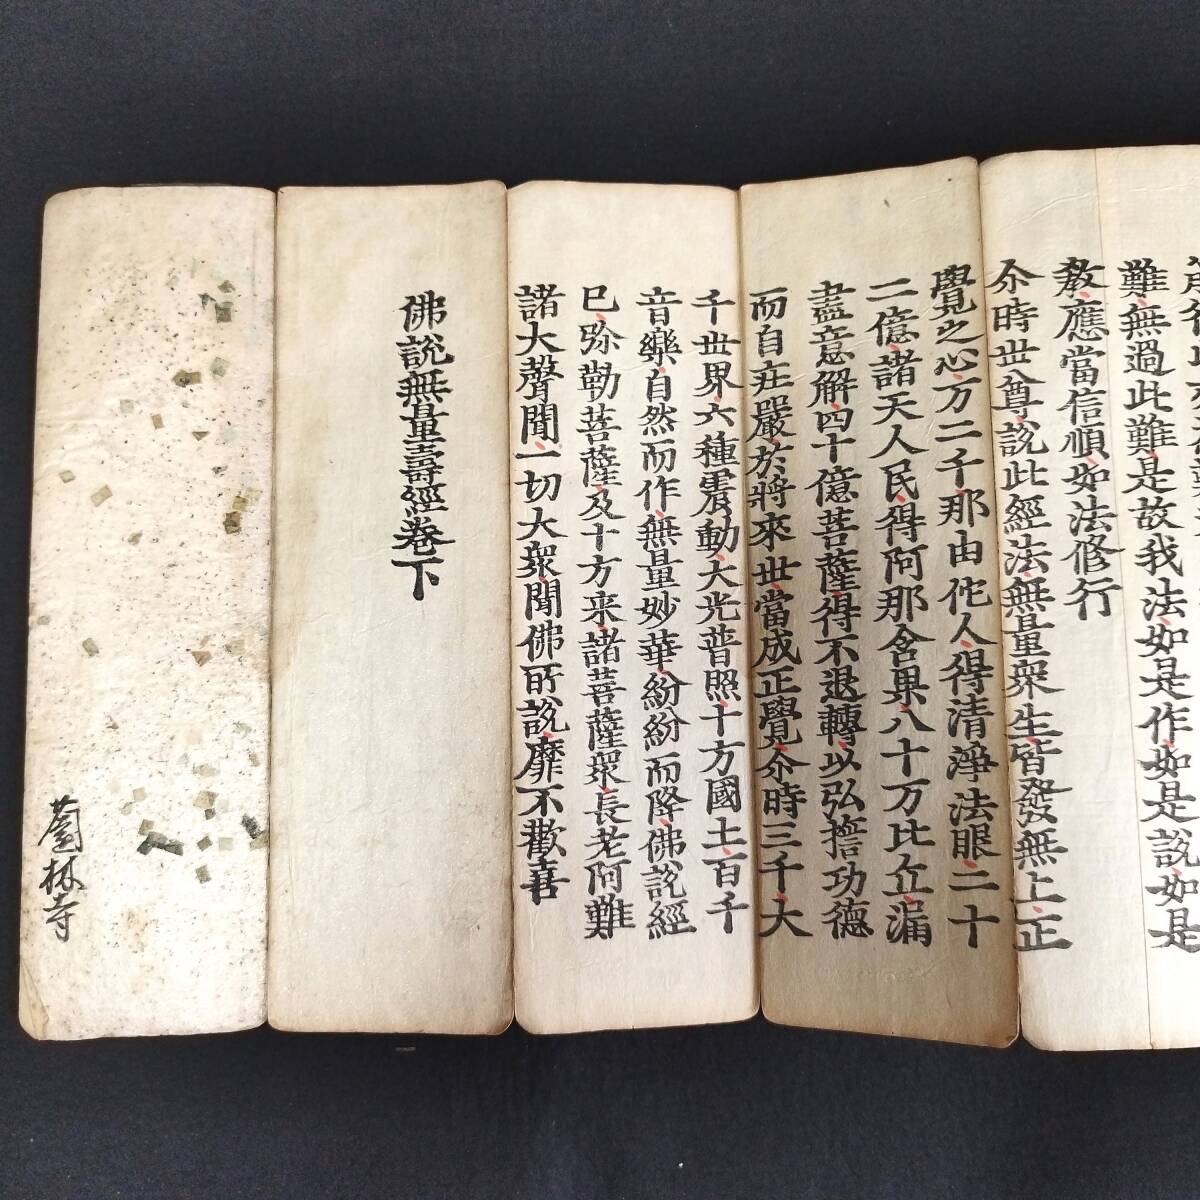 難無過此難是故我法如是作如是說如是
教應當信順如法修行
尒時世尊說此經法無量衆生皆發無上正
覺之心万二千那由佗人得清淨法眼二十
二億諸天人民得阿那含果八十万比丘漏
盡意解四十億菩薩得不退轉以弘誓功德
而自莊嚴於將來世當成正覺尒時三千大
千世界六種震動大光普照十方國土百千
音樂自然而作無量妙華紛紛而降佛說經
已弥勒菩薩及十方来諸菩薩衆長老阿難
諸大聲聞一切大衆聞佛所說靡不歡喜
佛說無量壽經卷下
林寺